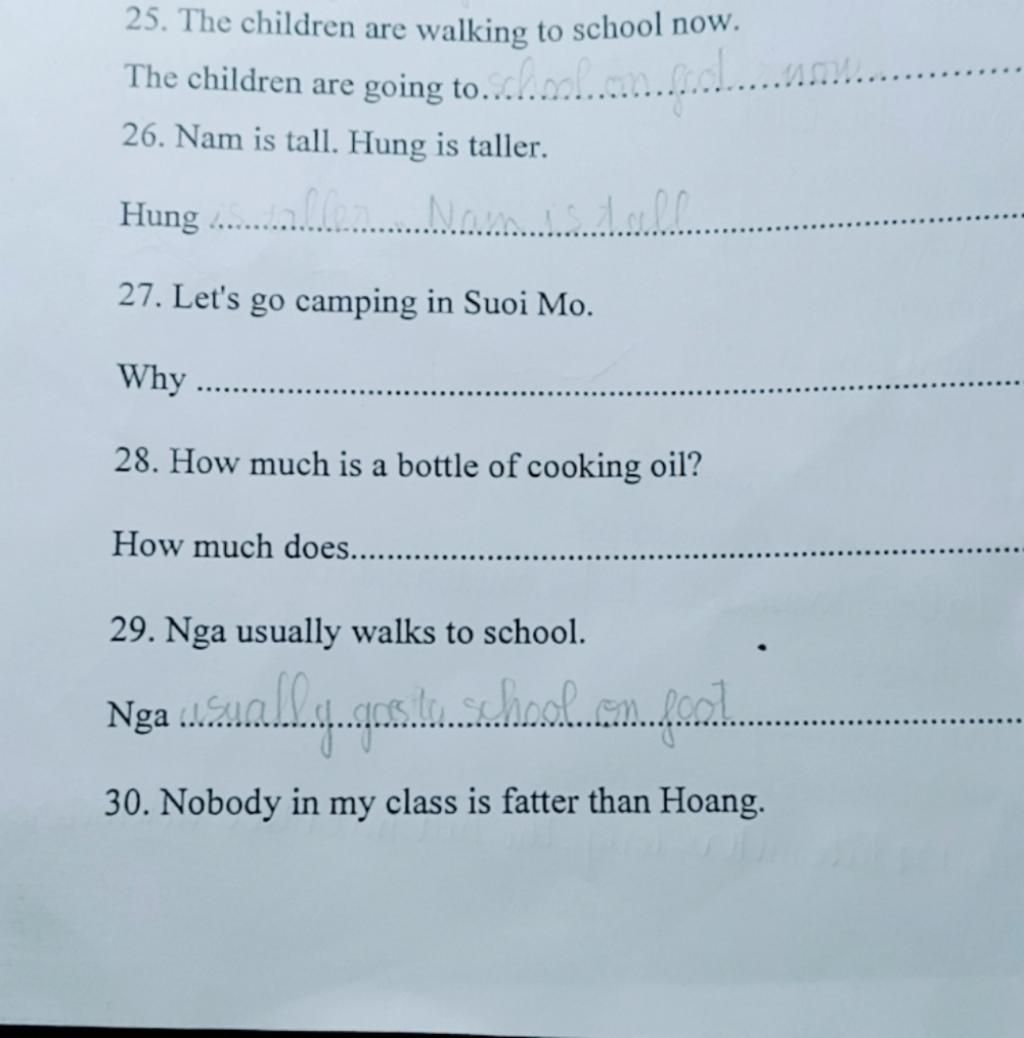 25. The children are walking to school now.
The children are going to school on foot now
26. Nam is tall. Hung is taller.
Hung is taller. Nam is tall
27. Let's go camping in Suoi Mo.
Why
28. How much is a bottle of cooking oil?
How much does
29. Nga usually walks to school.
Nga usually goes to school on foot
30. Nobody in my class is fatter than Hoang.